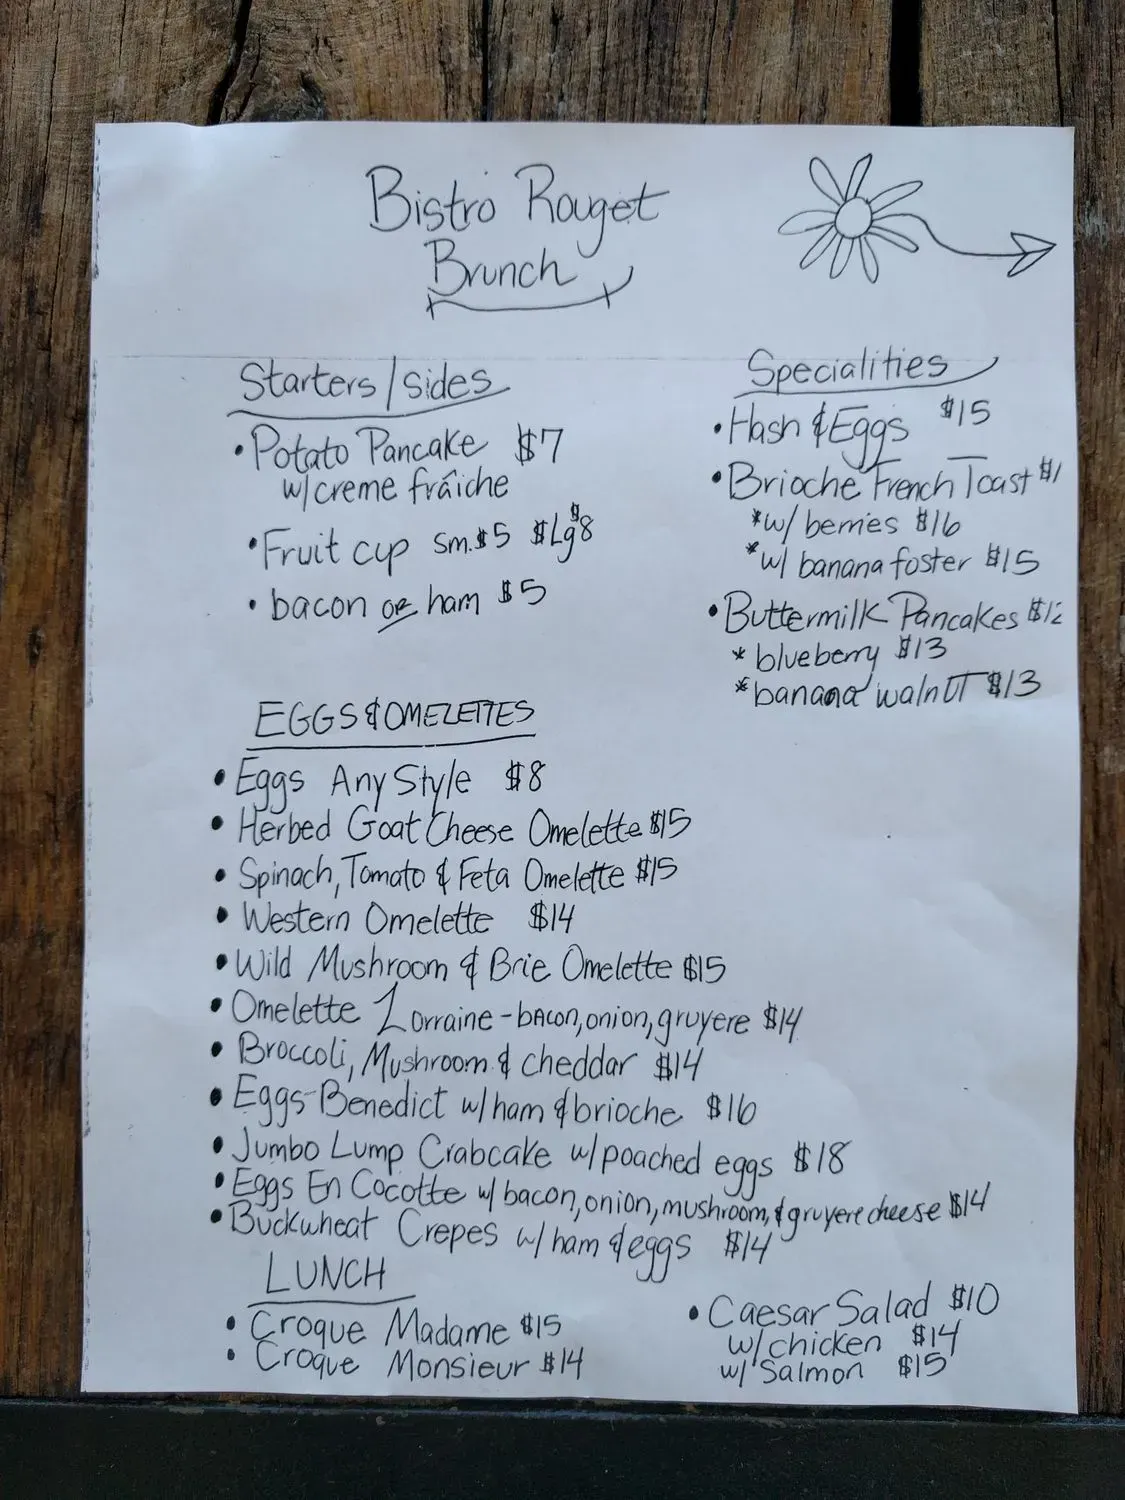 Bistro Rouget
Brunch
Starters/sides
• Potato Pancake $7
w/creme fráiche
• Fruit cup sm.$5 $Lg$8
• bacon or ham $5
Specialities
• Hash & Eggs $15
• Brioche French Toast $1
*w/ berries $16
*w/ banana foster $15
• Buttermilk Pancakes $12
* blueberry $13
*banana walnut $13
EGGS & OMELETTES
• Eggs Any Style $8
• Herbed Goat Cheese Omelette $15
• Spinach, Tomato & Feta Omelette $15
• Western Omelette $14
• Wild Mushroom & Brie Omelette $15
• Omelette Lorraine - bacon, onion, gruyere $14
• Broccoli, Mushroom & cheddar $14
• Eggs-Benedict w/ham & brioche $16
• Jumbo Lump Crabcake w/poached eggs $18
• Eggs En Cocotte w/ bacon, onion, mushroom, & gruyere cheese $14
• Buckwheat Crepes w/ ham & eggs $14
LUNCH
• Croque Madame $15
• Croque Monsieur $14
• Caesar Salad $10
w/chicken $14
w/ Salmon $15